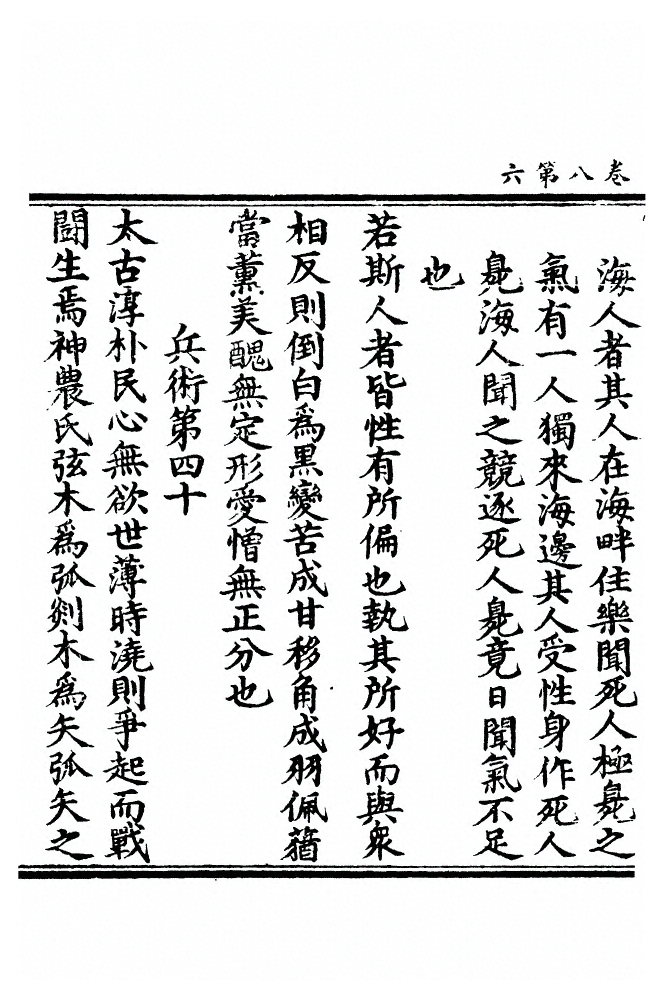 卷八第六
海人者其人在海畔住樂聞死人極臰之
氣有一人獨來海邊其人受性身作死人
臰海人聞之競逐死人臰竟日聞氣不足
也
若斯人者皆性有所偏也執其所好而與衆
相反則倒白爲黑變苦成甘移角成羽佩蕕
當薰美醜無定形愛憎無正分也
兵術第四十
太古淳朴民心無欲世薄時澆則爭起而戰
鬪生焉神農氏弦木爲弧剡木爲矢弧矢之